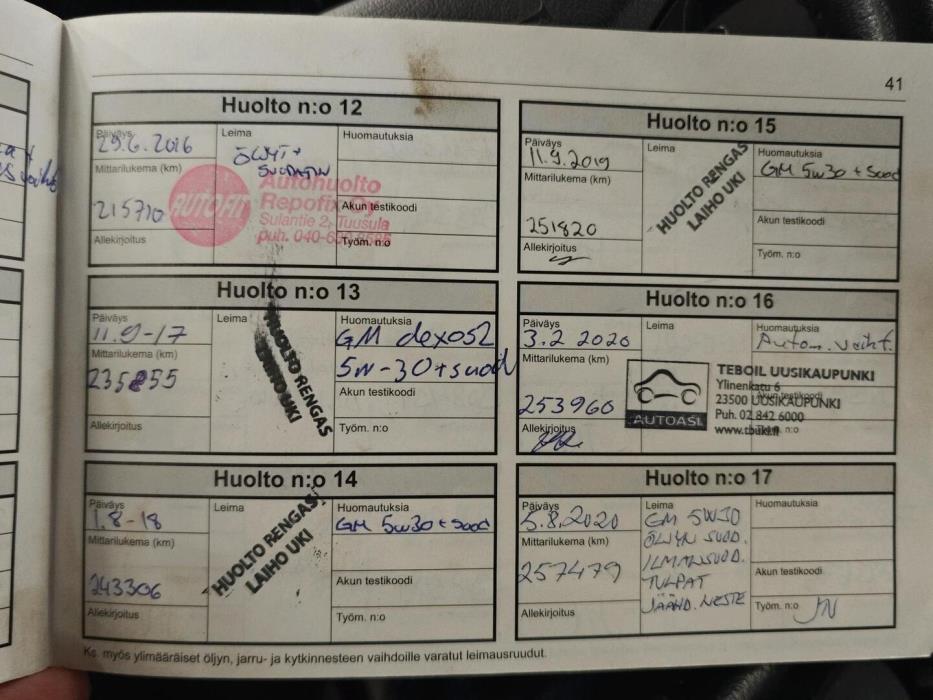 41
Huolto n:o 12
Päiväys
29.6.2016
Mittarilukema (km)
215710
Allekirjoitus
Leima
ÖLJYT+
SUODATIN
AUTOFIT
Autohuolto
Repofix Oy
Sulantie 2, Tuusula
puh. 040-
Huomautuksia
Akun testikoodi
Työm. n:o
Huolto n:o 13
Päiväys
11.9-17
Mittarilukema (km)
235855
Allekirjoitus
Leima
HUOLTO RENGAS
LAIHO UKI
Huomautuksia
GM dexos2
5W-30+suod
Akun testikoodi
Työm. n:o
Huolto n:o 14
Päiväys
1.8-18
Mittarilukema (km)
243306
Allekirjoitus
Leima
HUOLTO RENGAS
LAIHO UKI
Huomautuksia
GM 5w30 + Suod
Akun testikoodi
Työm. n:o
Huolto n:o 15
Päiväys
11.9.2019
Mittarilukema (km)
251820
Allekirjoitus
Leima
HUOLTO RENGAS
LAIHO UKI
Huomautuksia
GM 5w30 + Suod
Akun testikoodi
Työm. n:o
Huolto n:o 16
Päiväys
3.2 2020
Mittarilukema (km)
253960
Allekirjoitus
Leima
AUTOASI
TEBOIL UUSIKAUPUNKI
Ylinenkatu 6
23500 UUSIKAUPUNKI
Puh. 02 842 6000
www.tbuki.fi
Huomautuksia
Autom. vaiht.
Akun testikoodi
n:o
Huolto n:o 17
Päiväys
5.8.2020
Mittarilukema (km)
257479
Allekirjoitus
Leima
GM 5W30
ÖLJYN SUOD.
ILMANSUOD.
TULPAT
JÄÄHD. NESTE
Huomautuksia
Akun testikoodi
Työm. n:o JN
Ks. myös ylimääräiset öljyn, jarru- ja kytkinnesteen vaihdoille varatut leimausruudut.